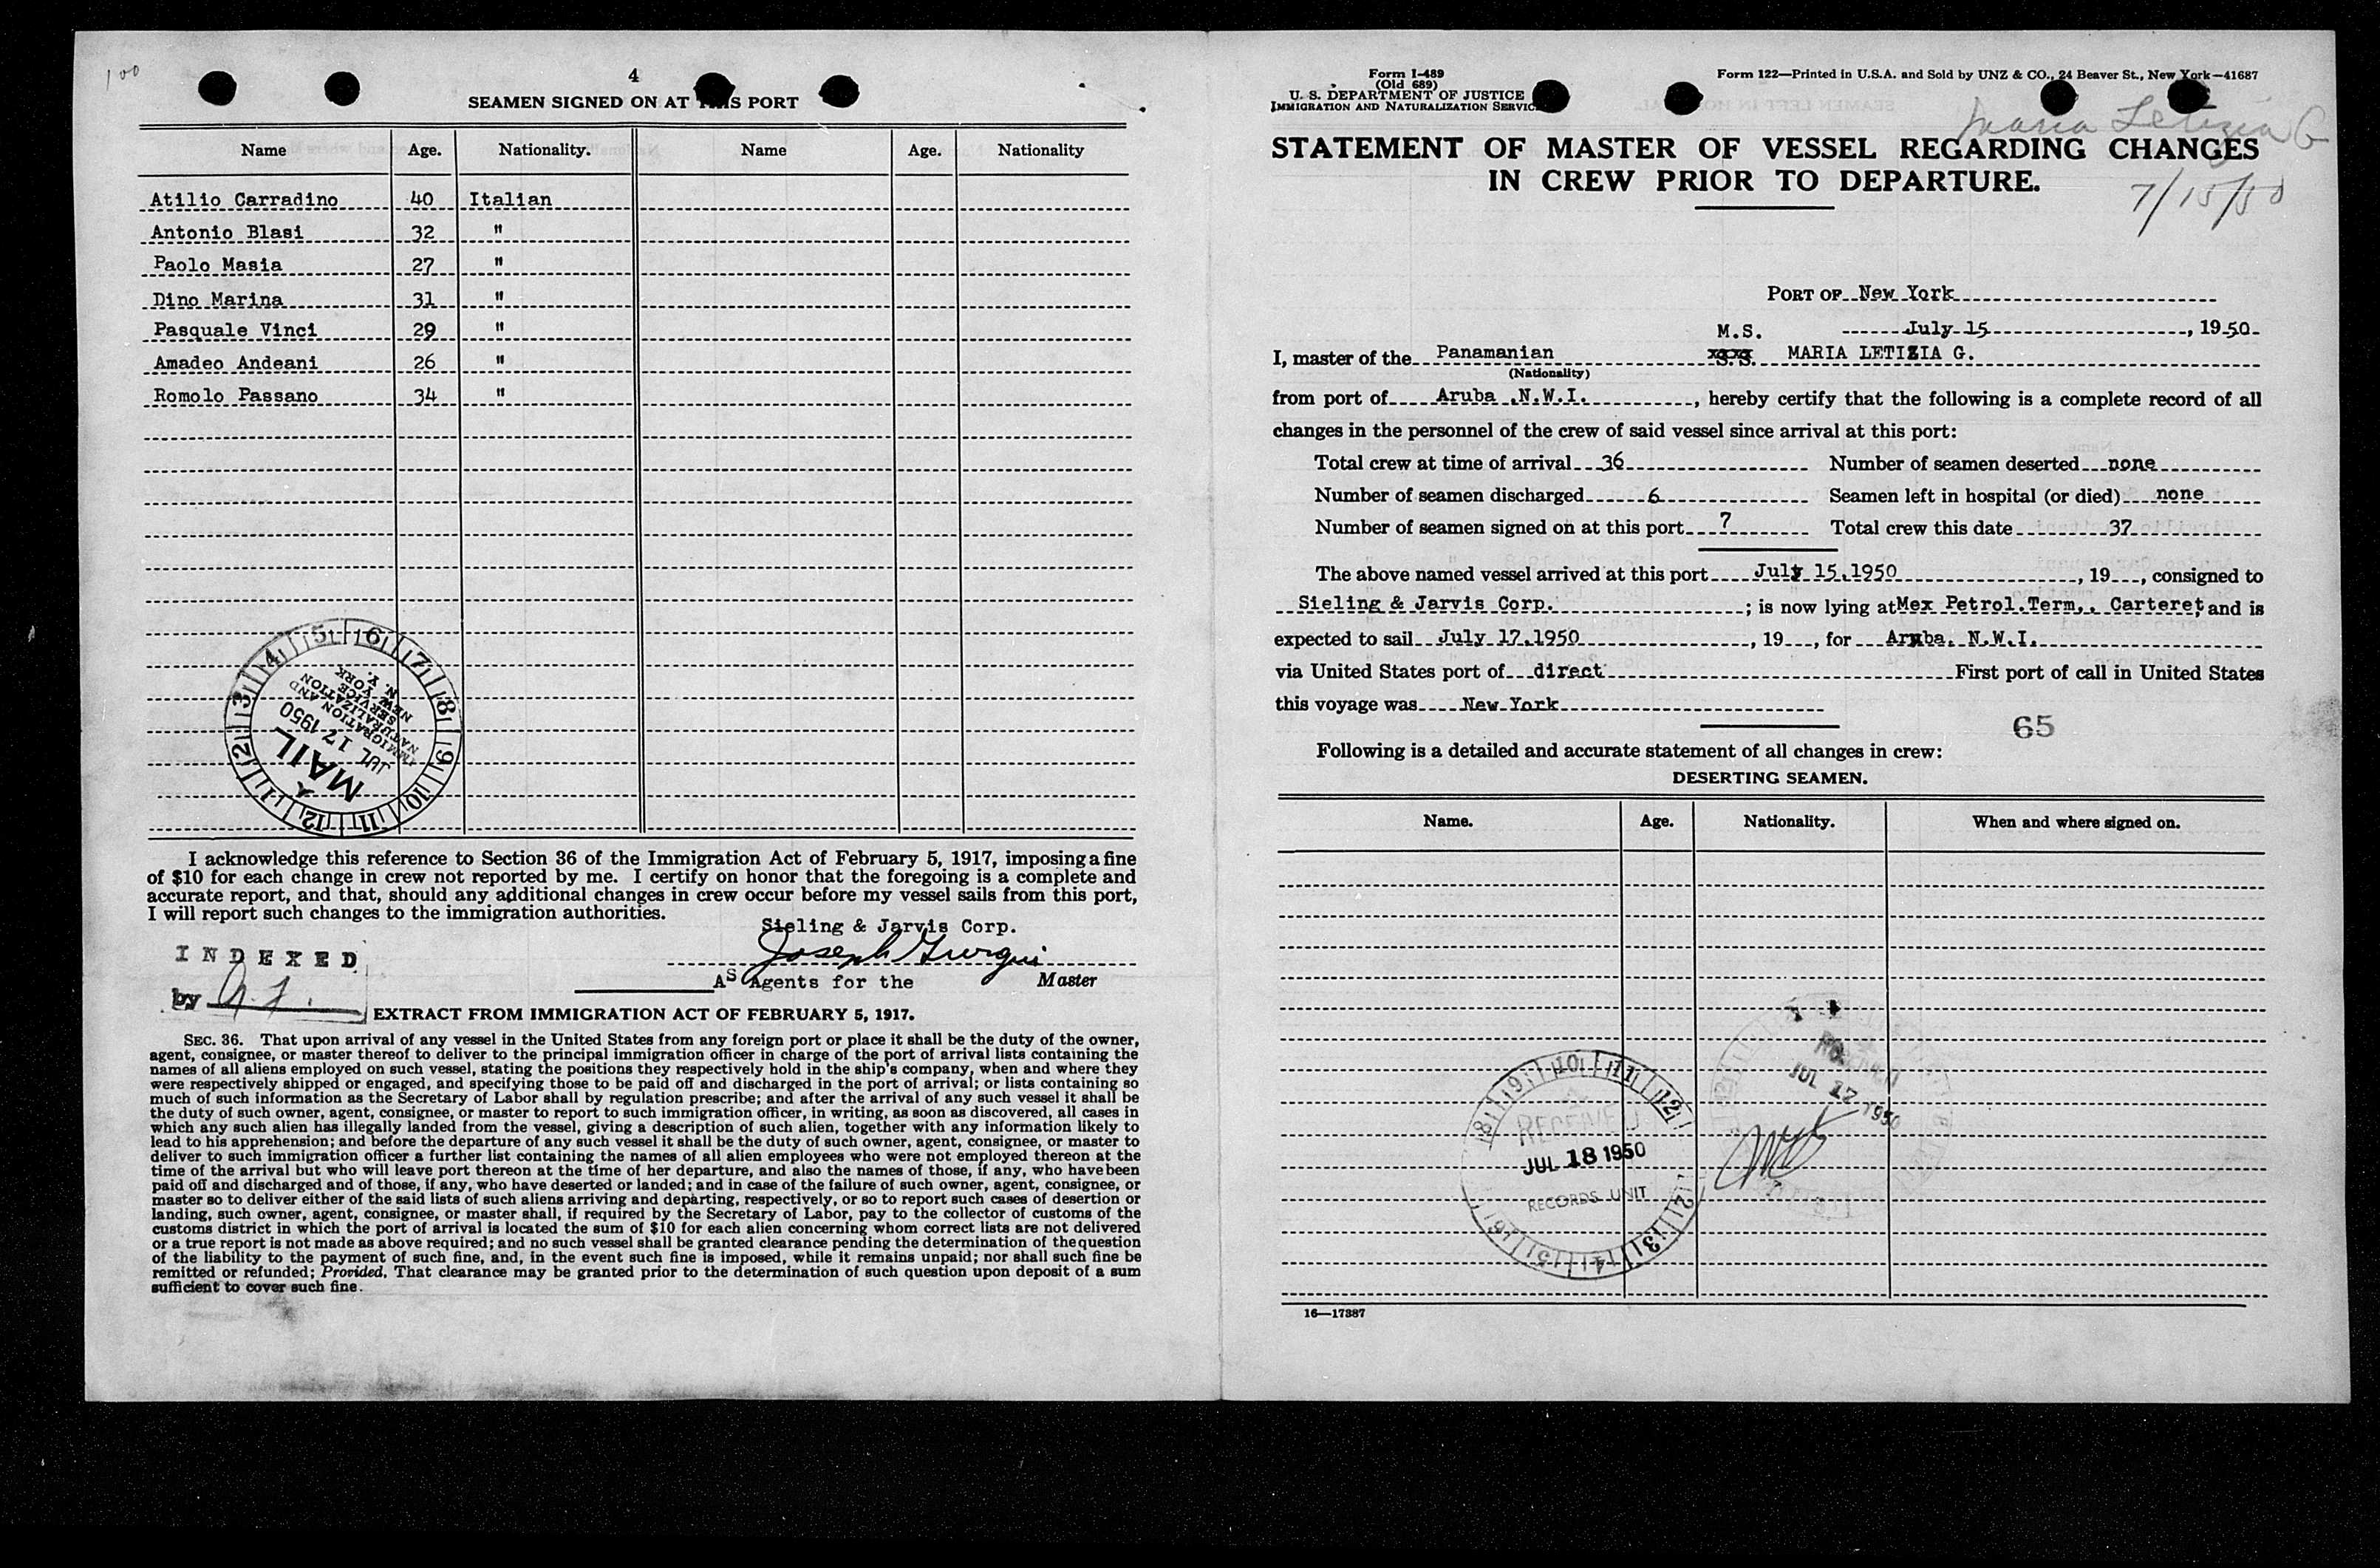 100
4
SEAMEN SIGNED ON AT THIS PORT
Name Age. Nationality. Name Age. Nationality
Atilio Carradino 40 Italian
Antonio Blasi 32 "
Paolo Masia 27 "
Dino Marina 31 "
Pasquale Vinci 29 "
Amadeo Andeani 26 "
Romolo Passano 34 "
1 2 3 4 5 6 7 8 9 10 11 12
MAIL
JUL 17 1950
IMMIGRATION AND
NATURALIZATION
SERVICE
NEW YORK
N. Y.
I acknowledge this reference to Section 36 of the Immigration Act of February 5, 1917, imposing a fine
of $10 for each change in crew not reported by me. I certify on honor that the foregoing is a complete and
accurate report, and that, should any additional changes in crew occur before my vessel sails from this port,
I will report such changes to the immigration authorities.
Sieling & Jarvis Corp.
INDEXED
Joseph
As Agents for the Master
by
EXTRACT FROM IMMIGRATION ACT OF FEBRUARY 5, 1917.
SEC. 36. That upon arrival of any vessel in the United States from any foreign port or place it shall be the duty of the owner,
agent, consignee, or master thereof to deliver to the principal immigration officer in charge of the port of arrival lists containing the
names of all aliens employed on such vessel, stating the positions they respectively hold in the ship's company, when and where they
were respectively shipped or engaged, and specifying those to be paid off and discharged in the port of arrival; or lists containing so
much of such information as the Secretary of Labor shall by regulation prescribe; and after the arrival of any such vessel it shall be
the duty of such owner, agent, consignee, or master to report to such immigration officer, in writing, as soon as discovered, all cases in
which any such alien has illegally landed from the vessel, giving a description of such alien, together with any information likely to
lead to his apprehension; and before the departure of any such vessel it shall be the duty of such owner, agent, consignee, or master to
deliver to such immigration officer a further list containing the names of all alien employees who were not employed thereon at the
time of the arrival but who will leave port thereon at the time of her departure, and also the names of those, if any, who have been
paid off and discharged and of those, if any, who have deserted or landed; and in case of the failure of such owner, agent, consignee, or
master so to deliver either of the said lists of such aliens arriving and departing, respectively, or so to report such cases of desertion or
landing, such owner, agent, consignee, or master shall, if required by the Secretary of Labor, pay to the collector of customs of the
customs district in which the port of arrival is located the sum of $10 for each alien concerning whom correct lists are not delivered
or a true report is not made as above required; and no such vessel shall be granted clearance pending the determination of the question
of the liability to the payment of such fine, and, in the event such fine is imposed, while it remains unpaid; nor shall such fine be
remitted or refunded; Provided, That clearance may be granted prior to the determination of such question upon deposit of a sum
sufficient to cover such fine.
Form I-489
(Old 689)
U. S. DEPARTMENT OF JUSTICE
IMMIGRATION AND NATURALIZATION SERVICE
Form 122—Printed in U.S.A. and Sold by UNZ & CO., 24 Beaver St., New York—41687
Maria Letizia G
STATEMENT OF MASTER OF VESSEL REGARDING CHANGES
IN CREW PRIOR TO DEPARTURE.
7/15/50
PORT OF New York
M.S. July 15, 1950
I, master of the Panamanian S.S. MARIA LETIZIA G.
(Nationality)
from port of Aruba .N.W.I., hereby certify that the following is a complete record of all
changes in the personnel of the crew of said vessel since arrival at this port:
Total crew at time of arrival 36 Number of seamen deserted none
Number of seamen discharged 6 Seamen left in hospital (or died) none
Number of seamen signed on at this port 7 Total crew this date 37
The above named vessel arrived at this port July 15,1950, 19, consigned to
Sieling & Jarvis Corp.; is now lying at Mex Petrol.Term,. Carteret and is
expected to sail July 17,1950, 19, for Aruba. N.W.I.
via United States port of direct First port of call in United States
this voyage was New York
65
Following is a detailed and accurate statement of all changes in crew:
DESERTING SEAMEN.
Name. Age. Nationality. When and where signed on.
JUL 17 1950
8 9 10 11 12 1 2 3 4 5 6
RECEIVED
JUL 18 1950
RECORDS UNIT
16—17387